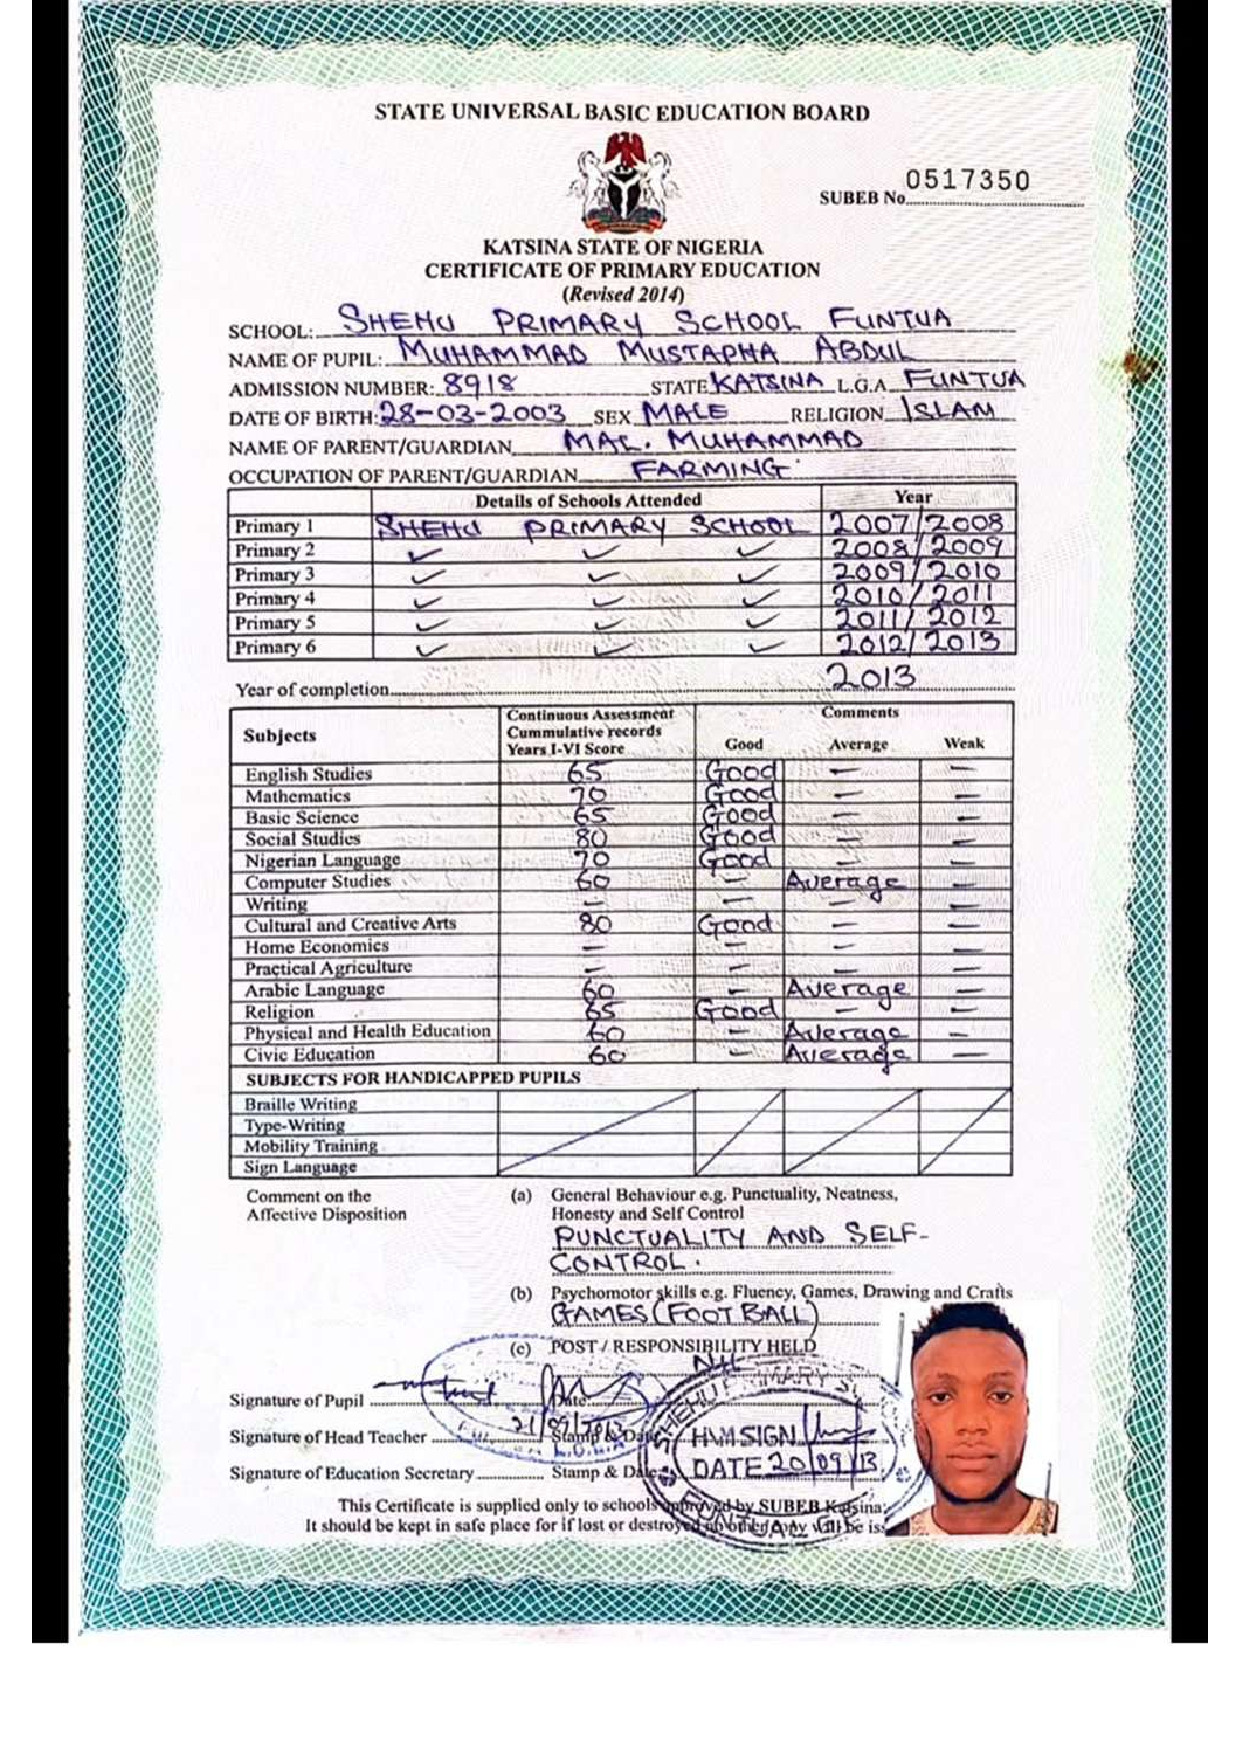 STATE UNIVERSAL BASIC EDUCATION BOARD
0517350
SUBEB No
KATSINA STATE OF NIGERIA
CERTIFICATE OF PRIMARY EDUCATION
(Revised 2014)
SCHOOL: SHEHU PRIMARY SCHOOL FUNTUA
NAME OF PUPIL: MUHAMMAD MUSTAPHA ABDUL
ADMISSION NUMBER: 8918 STATE KATSINA L.G.A. FUNTUA
DATE OF BIRTH: 28-03-2003 SEX MALE RELIGION ISLAM
NAME OF PARENT/GUARDIAN MAL. MUHAMMAD
OCCUPATION OF PARENT/GUARDIAN FARMING
Details of Schools Attended Year
Primary 1 SHEHU PRIMARY SCHOOL 2007/2008
Primary 2 2008/2009
Primary 3 2009/2010
Primary 4 2010/2011
Primary 5 2011/2012
Primary 6 2012/2013
Year of completion 2013
Subjects Continuous Assessment Cummulative records Years I-VI Score Comments
Good Average Weak
English Studies 65 Good — —
Mathematics 70 Good — —
Basic Science 65 Good — —
Social Studies 80 Good — —
Nigerian Language 70 Good — —
Computer Studies 60 — Average —
Writing — — — —
Cultural and Creative Arts 80 Good — —
Home Economics — — — —
Practical Agriculture — — — —
Arabic Language 60 — Average —
Religion Good — —
Physical and Health Education 60 — Average —
Civic Education 60 — Average —
SUBJECTS FOR HANDICAPPED PUPILS
Braille Writing
Type-Writing
Mobility Training
Sign Language
Comment on the Affective Disposition
(a) General Behaviour e.g. Punctuality, Neatness,
Honesty and Self Control
PUNCTUALITY AND SELF-
CONTROL.
(b) Psychomotor skills e.g. Fluency, Games, Drawing and Crafts
GAMES (FOOTBALL)
(c) POST / RESPONSIBILITY HELD
NIL
Signature of Pupil
Signature of Head Teacher Stamp &
Signature of Education Secretary Stamp &
SHEHU PRIMARY
HM SIGN
DATE 20/09/13
FUNTUA
This Certificate is supplied only to schools approved by SUBEB Katsina
It should be kept in safe place for if lost or destroyed no other copy will be